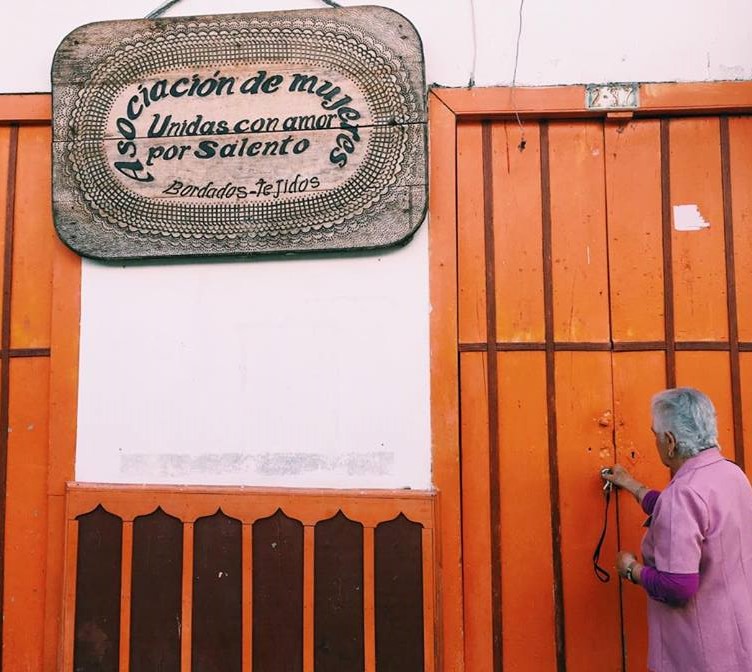 Asociación de mujeres
Unidas con amor
por Salento
Bordados-tejidos